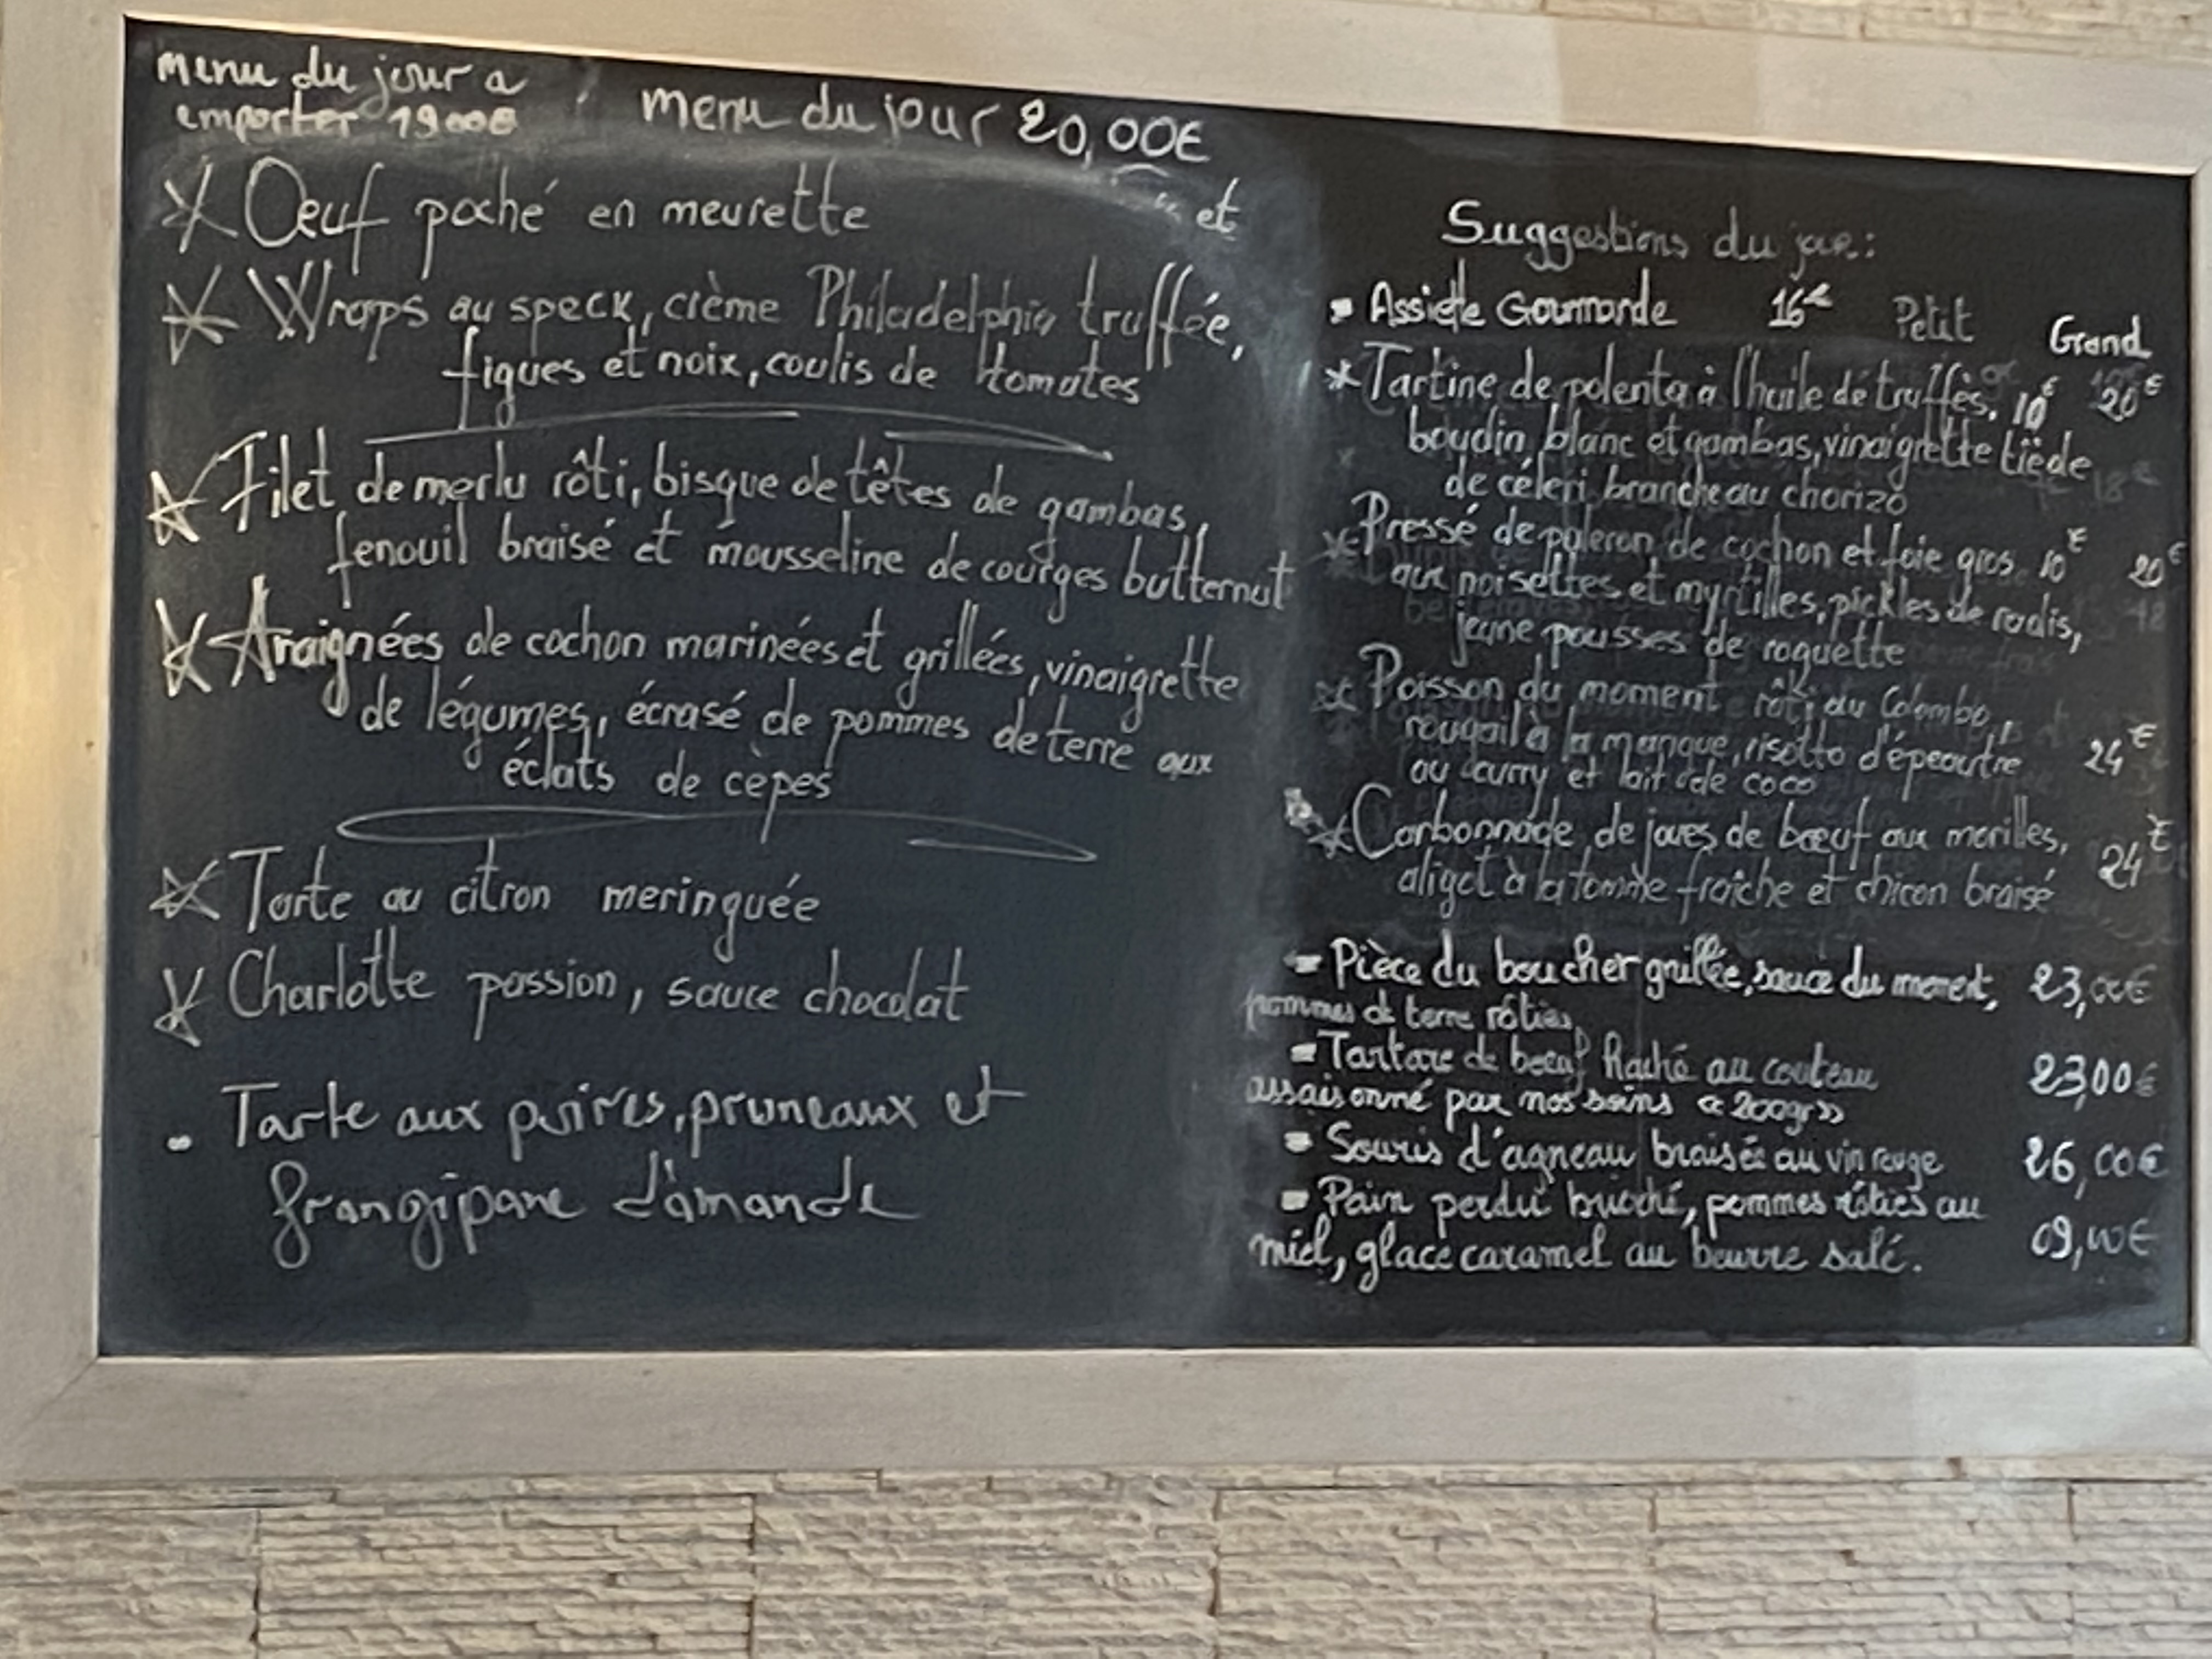 menu du jour a
emporter 19,00€
menu du jour 20,00€
Œuf poché en meurette
et
Wraps au speck, crème Philadelphia truffée,
figues et noix, coulis de tomates
Filet de merlu rôti, bisque de têtes de gambas,
fenouil braisé et mousseline de courges butternut
Araignées de cochon marinées et grillées, vinaigrette
de légumes, écrasé de pommes de terre aux
éclats de cèpes
Tarte au citron meringuée
Charlotte passion, sauce chocolat
Tarte aux poires, pruneaux et
frangipane d'amande
Suggestions du jour:
Assiette Gourmande 16€ Petit Grand
Tartine de polenta à l'huile de truffes, 10€ 20€
boudin blanc et gambas, vinaigrette tiède
de céleri branche au chorizo
Pressé de paleron de cochon et foie gras 10€ 20€
aux noisettes et myrtilles, pickles de radis,
jeune pousses de roquette
Poisson du moment rôti au Colombo,
rougail à la mangue, risotto d'épeautre 24€
au curry et lait de coco
Carbonnade de joues de bœuf aux morilles, 24€
aligot à la tomme fraîche et chicon braisé
Pièce du boucher grillée, sauce du moment, 23,00€
pommes de terre rôties
Tartare de bœuf haché au couteau 23,00€
assaisonné par nos soins «200gr»
Souris d'agneau braisée au vin rouge 26,00€
Pain perdu brioché, pommes rôties au
miel, glace caramel au beurre salé. 09,00€